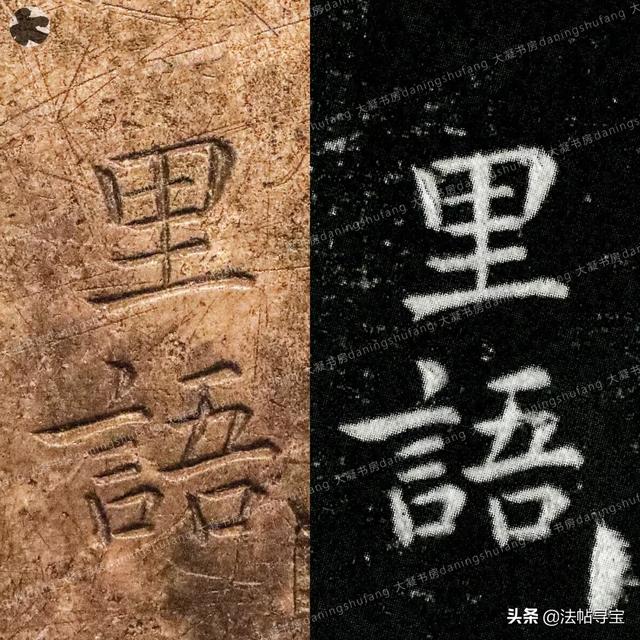 里
語
里
語
大寧书房daningshufang
头条 @法帖寻宝